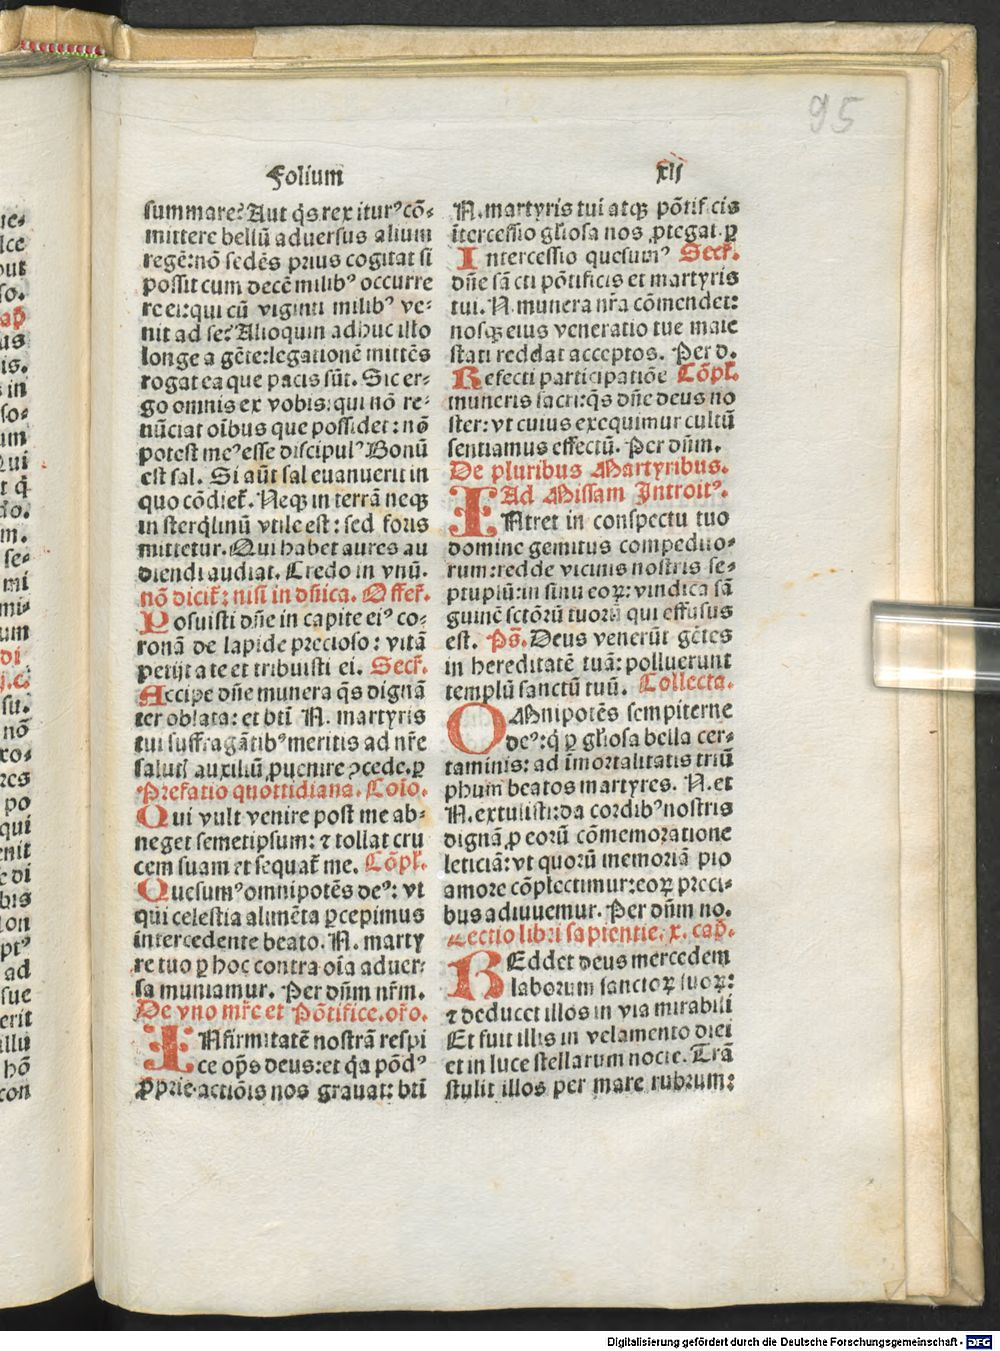 95
Folium xlj
summare? Aut q̇s rex iturꝰ cō⸗
mittere bellū aduersus alium
regē: nō sedēs prius cogitat si
possit cum decē milibꝰ occurre
re ei: qui cū viginti milibꝰ ve⸗
nit ad se? Alioquin adhuc illo
longe agēte: legationē mittēs
rogat ea que pacis sūt. Sic er⸗
go omnis ex vobis: qui nō re⸗
nūciat oībus que possidet: nō
potest meꝰ esse discipulꝰ Bonū
est sal. Si aūt sal euanuerit in
quo cōdiet᷑. Neqꝫ in terrā neqꝫ
in sterq̇linū vtile est: sed foras
mittetur. Qui habet aures au
diendi audiat. Credo in vnū.
nō dicit᷑: nisi in dn̄ica. Offer᷑.
Posuisti dn̄e in capite eiꝰ co⸗
ronā de lapide precioso: vitā
petijt a te et tribuisti ei. Secr᷑.
Accipe dn̄e munera q̄s dignā
ter oblata: et bt̄i N. martyris
tui suffragātibꝰ meritis ad nr̄e
salutis auxiliū ꝓuenire ꝯcede. ꝑ
Prefatio quottidiana. Cōio.
Qui vult venire post me ab⸗
neget semetipsum: ⁊ tollat cru
cem suam et sequat᷑ me. Cōpl᷑.
Quesumꝰ omnipotēs deꝰ: vt
qui celestia alimēta ꝑcepimus
intercedente beato. N. marty
re tuo ꝑ hoc contra oīa aduer⸗
sa muniamur. Per dn̄m nr̄m.
De vno mr̄e et Pōtifice. or̄o.
INfirmitatē nostrā respi
ce op̄s deus: et q̇a pōdꝰ
ꝓprie actiōis nos grauat: bt̄i
N. martyris tui atqꝫ pōtificis
ītercessio gl̄iosa nos ꝓtegat. ꝑ
Intercessio quesumꝰ Secr᷑.
dn̄e sācti pōtificis et martyris
tui. N. munera nr̄a cōmendet:
nosqꝫ eius veneratio tue maie
stati reddat acceptos. Per d.
Refecti participatiōe Cōpl᷑.
muneris sacri: q̄s dn̄e deus no
ster: vt cuius exequimur cultū
sentiamus effectū. Per dn̄m.
De pluribus Martyribus.
Ad Missam Introitꝰ.
INtret in conspectu tuo
domine gemitus compedito⸗
rum: redde vicinis nostris se⸗
ptuplū: in sinu eoꝝ: vindica sā
guinē sctōrū tuorū qui effusus
est. Ps̄. Deus venerūt gētes
in hereditatē tuā: polluerunt
templū sanctū tuū. Collecta.
OMnipotēs sempiterne
deꝰ: q̇ ꝑ gl̄iosa bella cer⸗
taminis: ad īmortalitatis triū
phum beatos martyres. N. et
N. extulisti: da cordibꝰ nostris
dignā ꝓ eorū cōmemoratione
leticiā: vt quorū memoriā pio
amore cōplectimur: eoꝝ preci⸗
bus adiuuemur. Per dn̄m no.
Lectio libri sapientie. x. cap̄.
REddet deus mercedem
laborum sanctoꝝ suoꝝ:
⁊ deducet illos in via mirabili
Et fuit illis in velamento diei
et in luce stellarum nocte. Trā
stulit illos per mare rubrum:
Digitalisierung gefördert durch die Deutsche Forschungsgemeinschaft - DFG